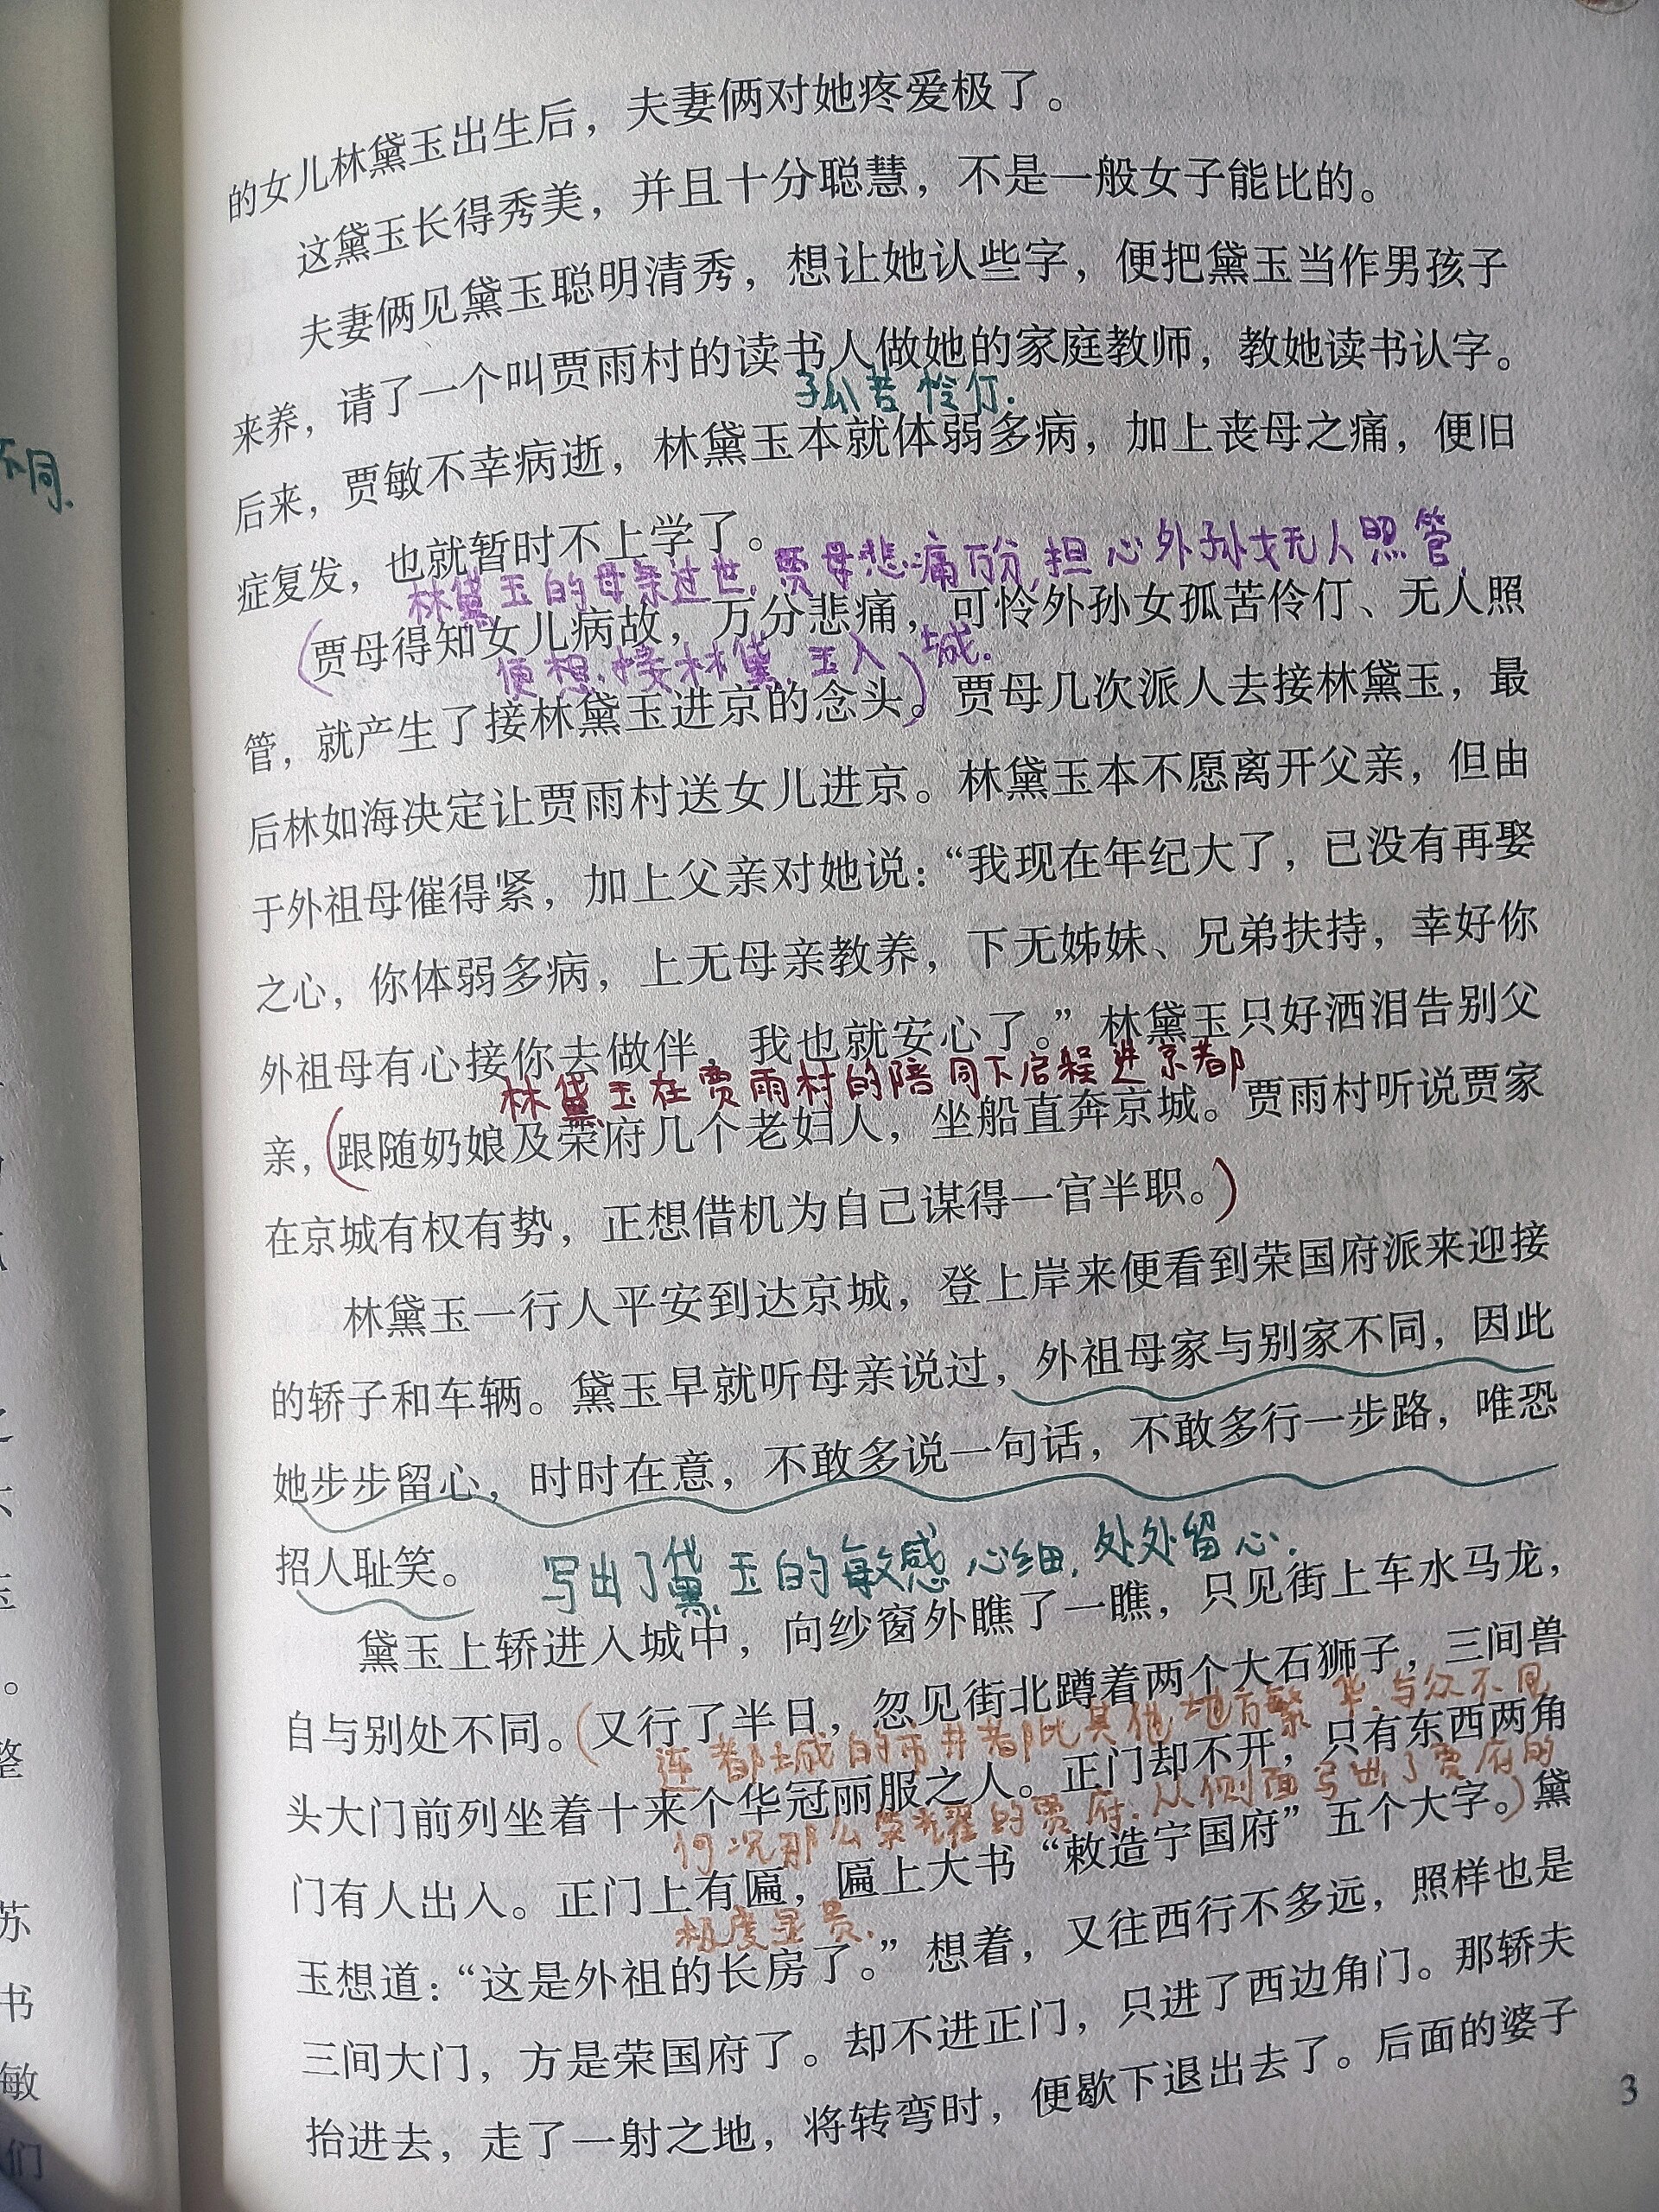 的女儿林黛玉出生后，夫妻俩对她疼爱极了。
这黛玉长得秀美，并且十分聪慧，不是一般女子能比的。
夫妻俩见黛玉聪明清秀，想让她认些字，便把黛玉当作男孩子
来养，请了一个叫贾雨村的读书人做她的家庭教师，教她读书认字。
孤苦怜仃.
不同.
后来，贾敏不幸病逝，林黛玉本就体弱多病，加上丧母之痛，便旧
症复发，也就暂时不上学了。
林黛玉的母亲过世,贾母悲痛万分,担心外孙女无人照管,
(贾母得知女儿病故，万分悲痛，可怜外孙女孤苦伶仃、无人照
便想接林黛玉入城.
管，就产生了接林黛玉进京的念头。)贾母几次派人去接林黛玉，最
后林如海决定让贾雨村送女儿进京。林黛玉本不愿离开父亲，但由
于外祖母催得紧，加上父亲对她说：“我现在年纪大了，已没有再娶
之心，你体弱多病，上无母亲教养，下无姊妹、兄弟扶持，幸好你
外祖母有心接你去做伴，我也就安心了。”林黛玉只好洒泪告别父
林黛玉在贾雨村的陪同下启程进京都
亲，(跟随奶娘及荣府几个老妇人，坐船直奔京城。贾雨村听说贾家
在京城有权有势，正想借机为自己谋得一官半职。)
林黛玉一行人平安到达京城，登上岸来便看到荣国府派来迎接
的轿子和车辆。黛玉早就听母亲说过，外祖母家与别家不同，因此
她步步留心，时时在意，不敢多说一句话，不敢多行一步路，唯恐
招人耻笑。
写出了黛玉的敏感心细,处处留心.
黛玉上轿进入城中，向纱窗外瞧了一瞧，只见街上车水马龙，
自与别处不同。(又行了半日，忽见街北蹲着两个大石狮子，三间兽
连都城的市井都比其他地方繁华,与众不同
头大门前列坐着十来个华冠丽服之人。正门却不开，只有东西两角
何况那么荣耀的贾府.从侧面写出了贾府的
门有人出入。正门上有匾，匾上大书“敕造宁国府”五个大字。)黛
极度显贵.
玉想道：“这是外祖的长房了。”想着，又往西行不多远，照样也是
三间大门，方是荣国府了。却不进正门，只进了西边角门。那轿夫
抬进去，走了一射之地，将转弯时，便歇下退出去了。后面的婆子
3
整
苏
书
敏
们